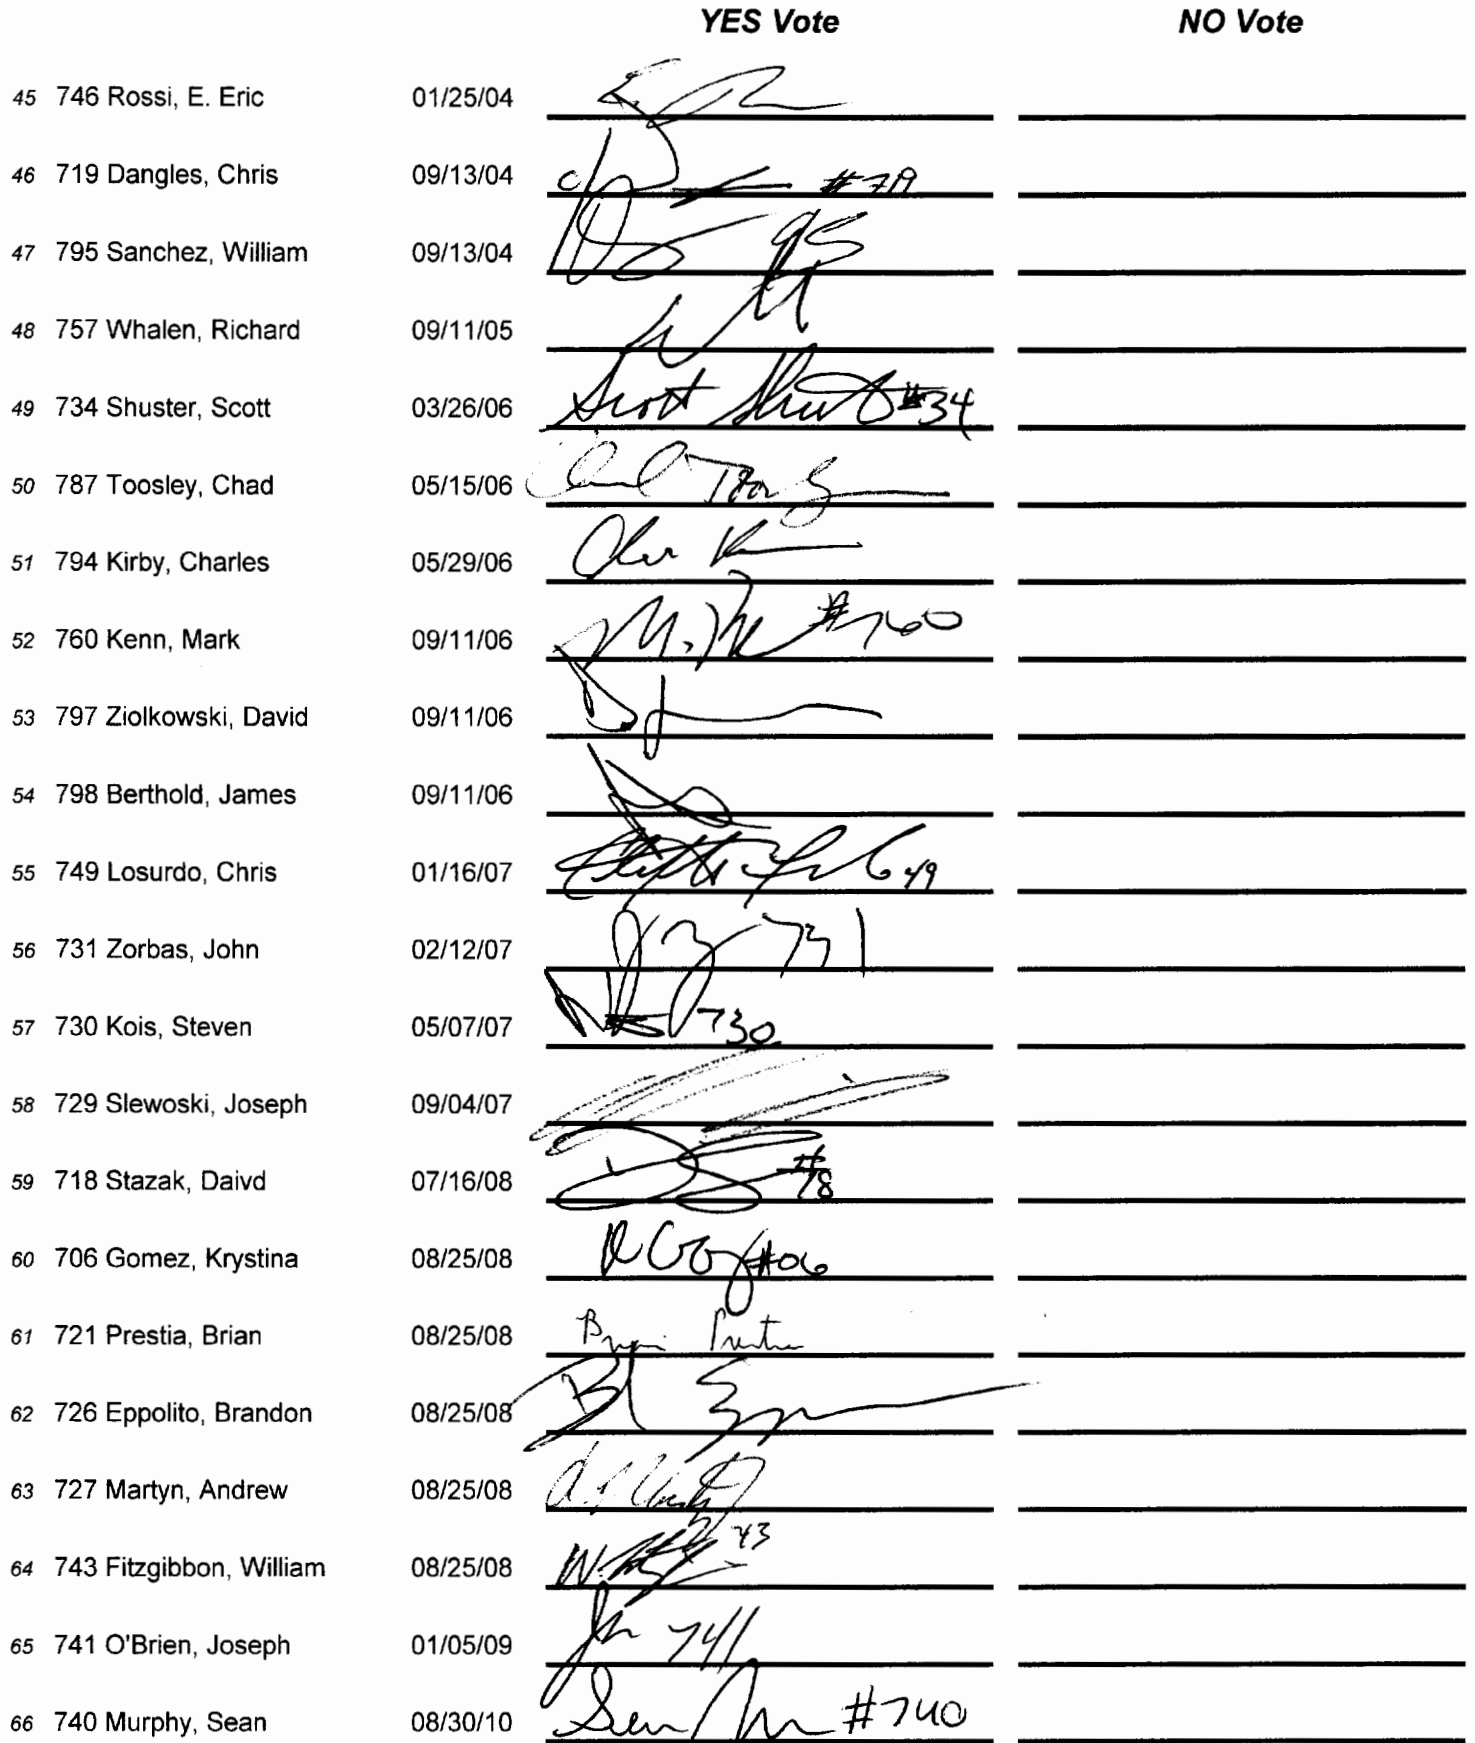 YES Vote NO Vote
45 746 Rossi, E. Eric 01/25/04
46 719 Dangles, Chris 09/13/04 #719
47 795 Sanchez, William 09/13/04 95
48 757 Whalen, Richard 09/11/05
49 734 Shuster, Scott 03/26/06 Scott Shuster #34
50 787 Toosley, Chad 05/15/06 Chad
51 794 Kirby, Charles 05/29/06
52 760 Kenn, Mark 09/11/06 #760
53 797 Ziolkowski, David 09/11/06
54 798 Berthold, James 09/11/06
55 749 Losurdo, Chris 01/16/07 49
56 731 Zorbas, John 02/12/07 731
57 730 Kois, Steven 05/07/07 730
58 729 Slewoski, Joseph 09/04/07
59 718 Stazak, Daivd 07/16/08 #18
60 706 Gomez, Krystina 08/25/08 #06
61 721 Prestia, Brian 08/25/08 Brian Prestia
62 726 Eppolito, Brandon 08/25/08
63 727 Martyn, Andrew 08/25/08
64 743 Fitzgibbon, William 08/25/08 43
65 741 O'Brien, Joseph 01/05/09 741
66 740 Murphy, Sean 08/30/10 Sean #740